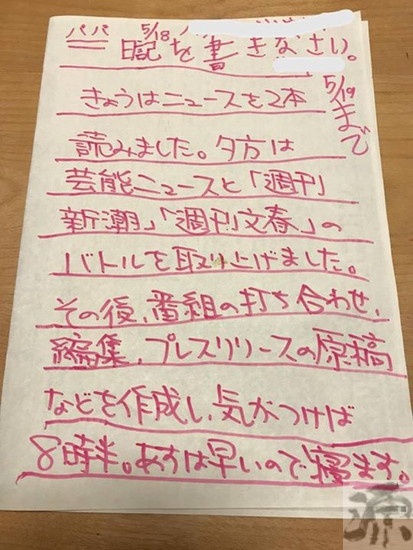 パパ 5/18
日記を書きなさい。
5/19まで
きょうはニュースを2本
読みました。夕方は
芸能ニュースと「週刊
新潮」「週刊文春」の
バトルを取り上げました。
その後、番組の打ち合わせ、
編集、プレスリリースの原稿
などを作成し、気がつけば
8時半。あすは早いので寝ます。